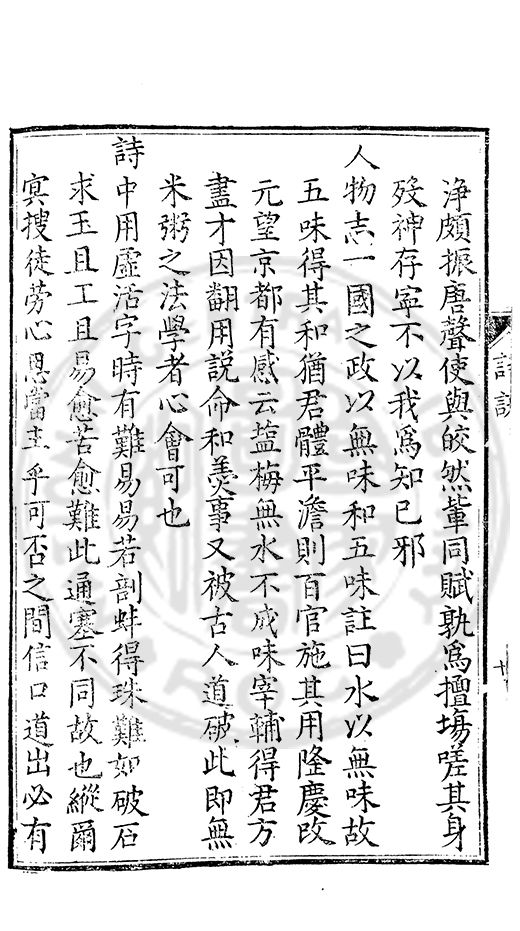 淨頗振唐聲使與皎然輩同賦孰爲擅塲嗟其身
歿神存寜不以我爲知己邪
人物志一國之政以無味和五味註曰水以無味故
五味得其和猶君體平澹則百官施其用隆慶改
元望京都有感云盐梅無水不成味宰輔得君方
盡才因翻用説命和羮事又被古人道破此即無
米粥之法學者心會可也
詩中用虚活字時有難易易若剖蚌得珠難如破石
求玉且工且易愈苦愈難此通塞不同故也縱爾
冥搜徒勞心思當主乎可否之間信口道出必有
詩說